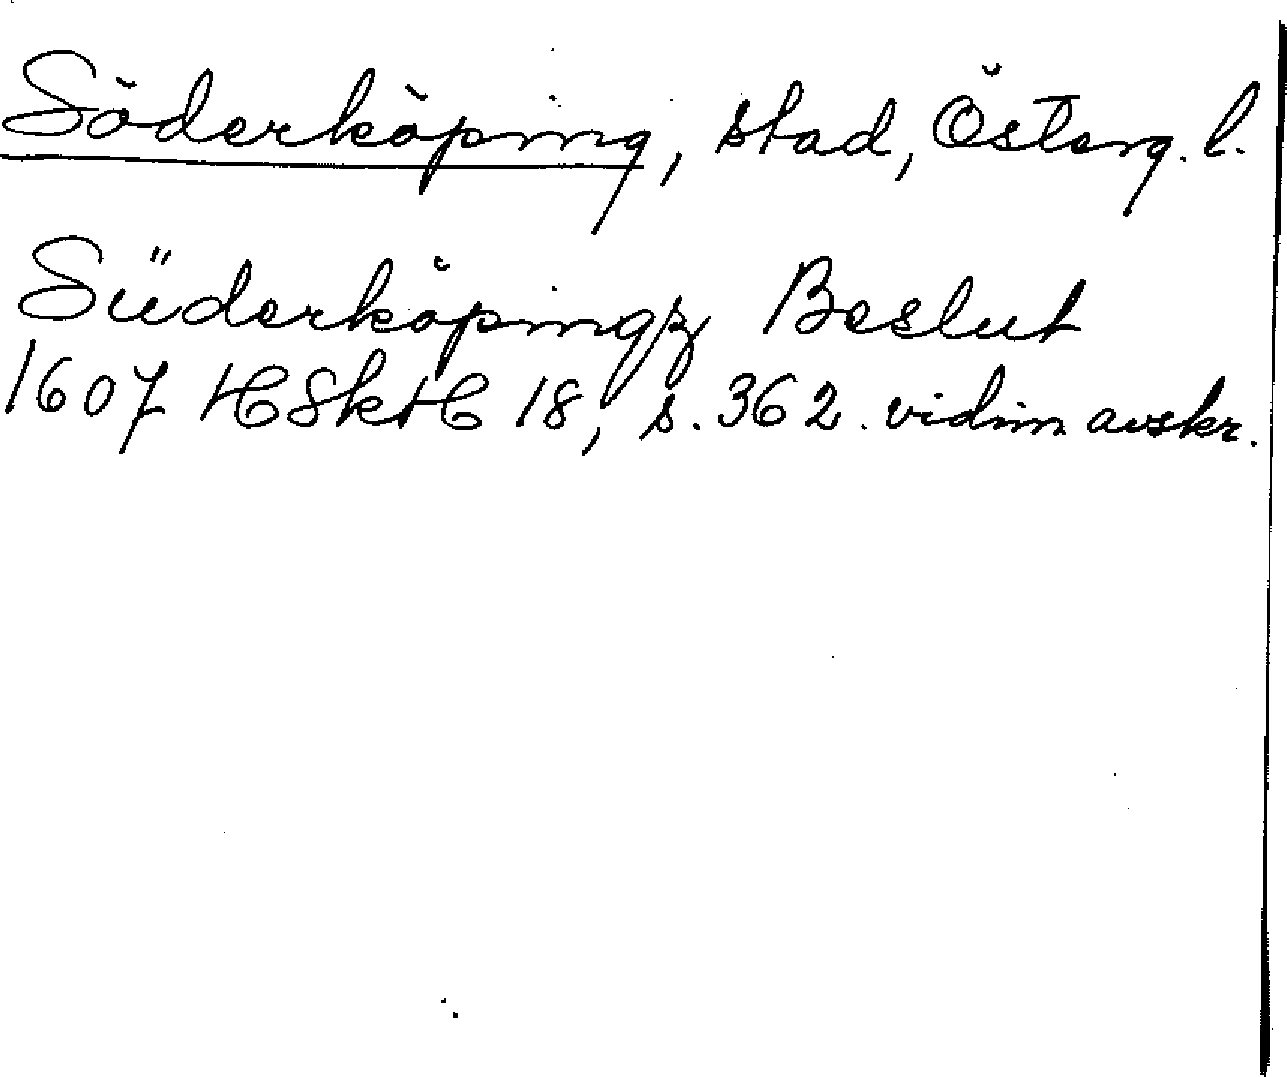 Söderköping, stad, Österg. l.
Süderköpingz Beslut
1607 HSkH 18, s. 362. vidim avskr.